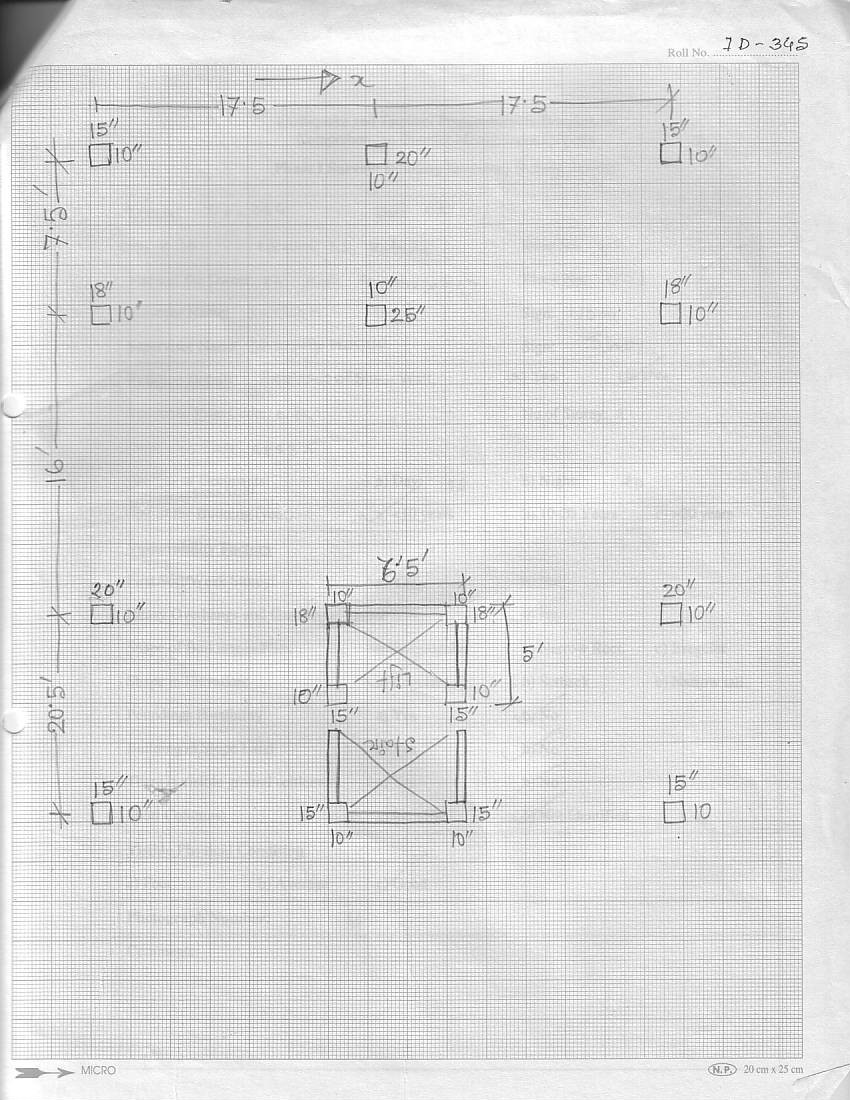 Roll No. ID-345
x
17.5 17.5
15" 15"
10" 20" 10"
10"
7.5'
18" 10" 18"
10" 25" 10"
16'
6'5'
20" 10" 10" 20"
10" 18" 18" 10"
5'
Lift
10" 10"
20'5'
15" 15"
Stair
15" 15"
10" 15" 15" 10
10" 10"
MICRO N.P. 20 cm x 25 cm